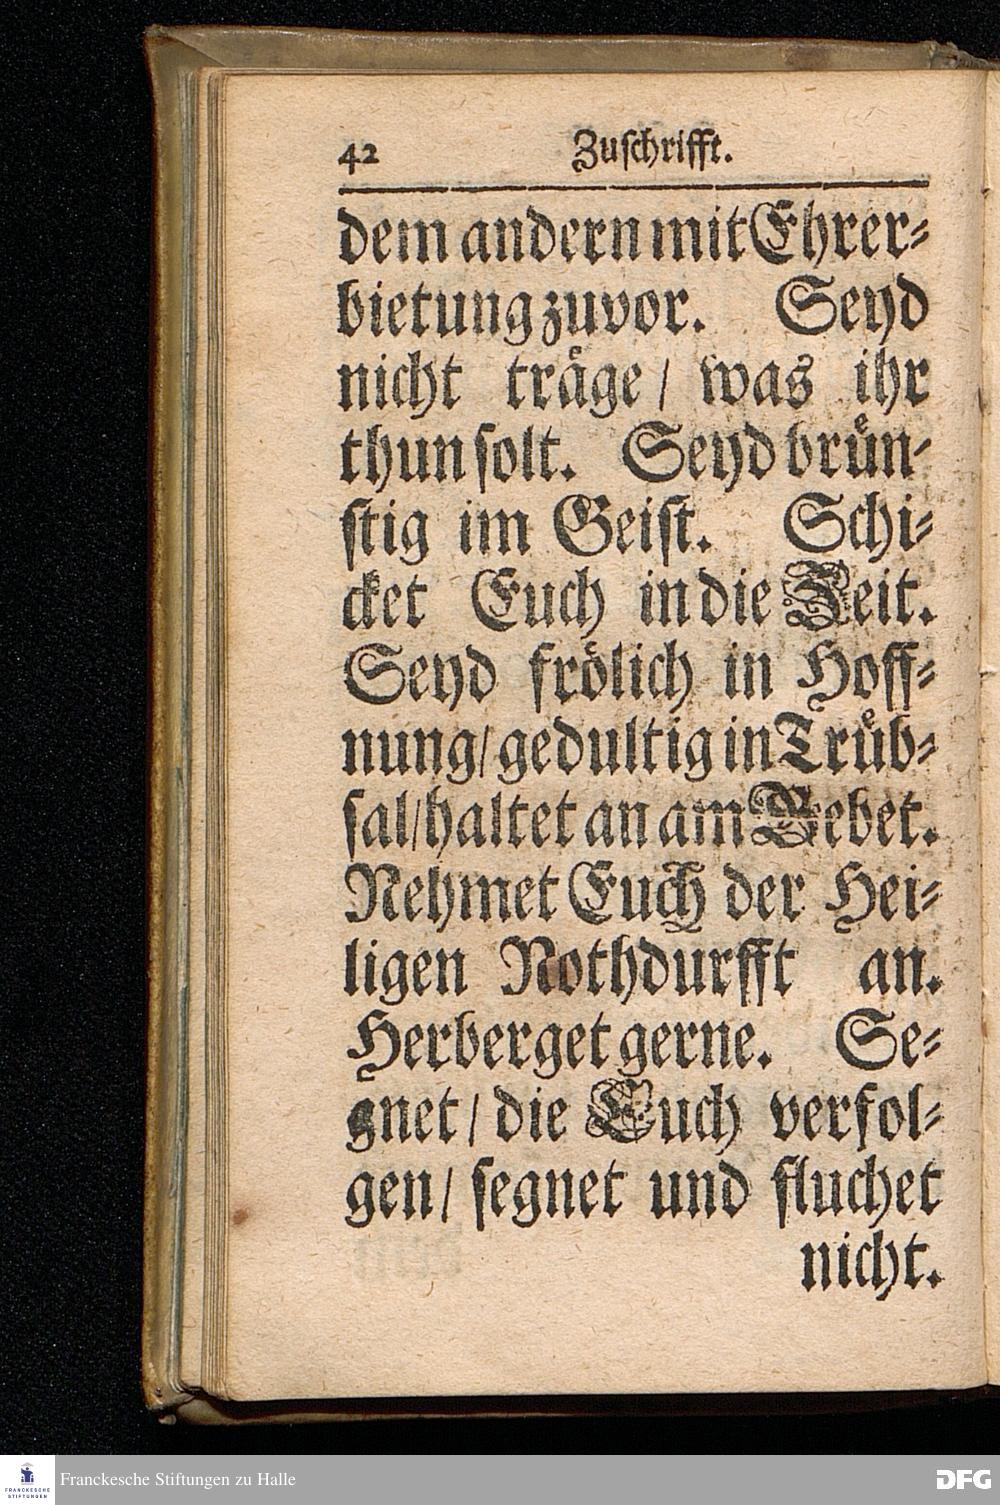 42 Zuſchrifft.
dem andern mit Ehrer⸗
bietung zuvor. Seyd
nicht träge / was ihr
thun ſolt. Seyd brün⸗
ſtig im Geiſt. Schi⸗
cket Euch in die Zeit.
Seyd frölich in Hoff⸗
nung / gedultig in Trüb⸗
ſal / haltet an am Gebet.
Nehmet Euch der Hei⸗
ligen Nothdurfft an.
Herberget gerne. Se⸗
gnet / die Euch verfol⸗
gen / ſegnet und fluchet
nicht.
FRANCKESCHE
STIFTUNGEN
Franckesche Stiftungen zu Halle
DFG